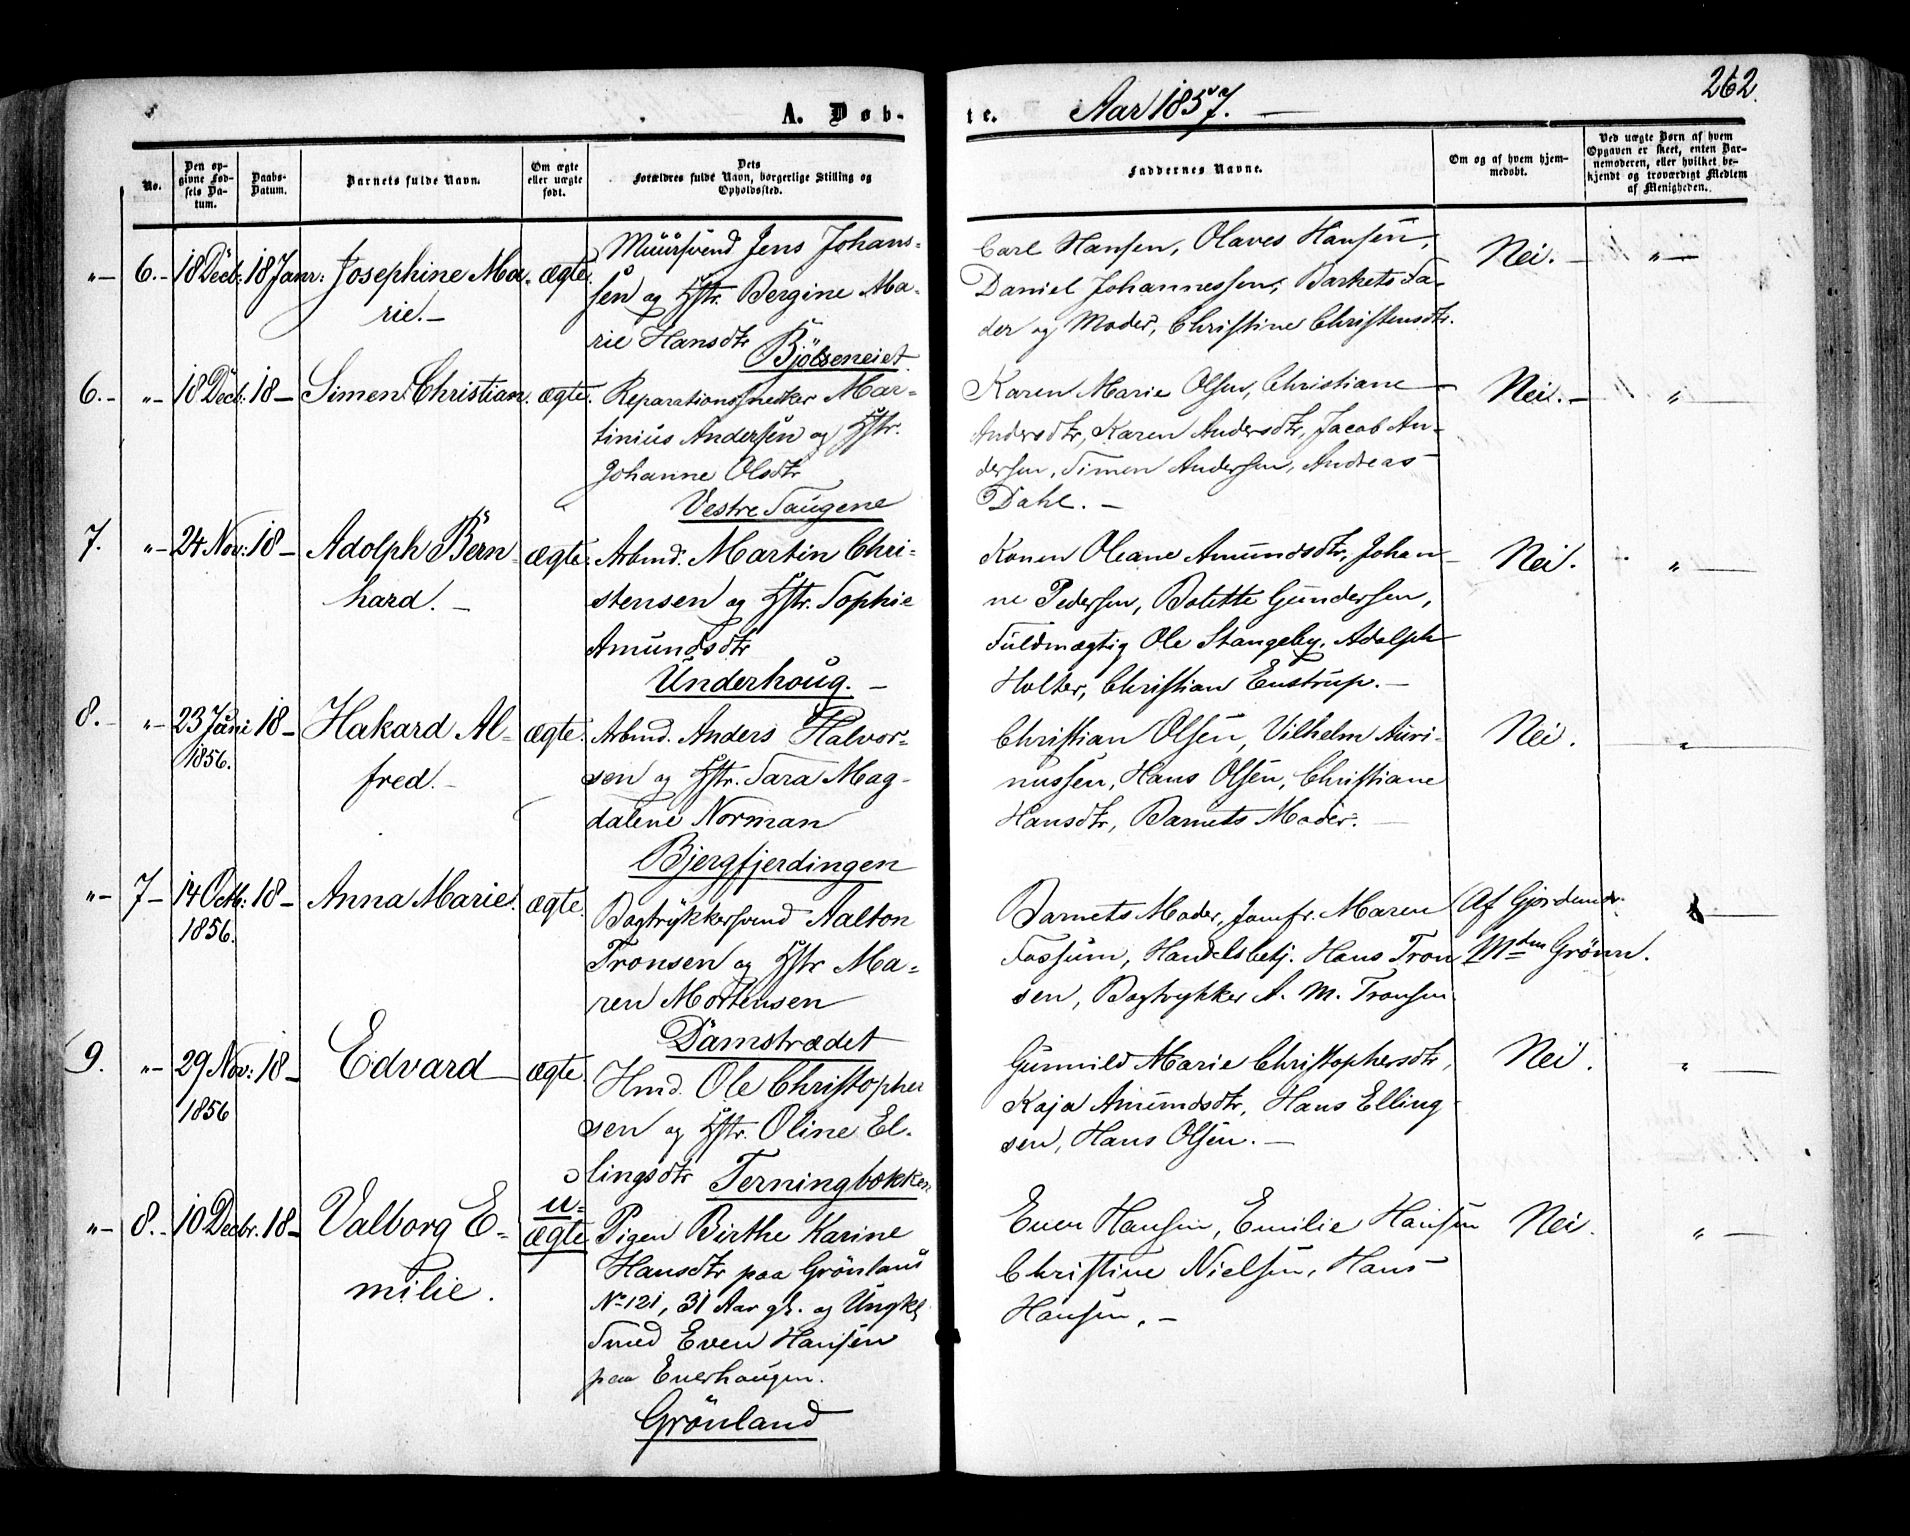 262.
A. Døb-
te.
Aar 1857. —
No.
Den op-
givne Fød-
sels Da-
tum.
Daabs-
Datum.
Barnets fulde Navn.
Om ægte
eller uægte
født.
Dets
Forældres fulde Navn, borgerlige Stilling og
Opholdssted.
Faddernes Navne.
Om og af hvem hjem-
medøbt.
Ved uægte Børn af hvem
Opgaven er skeet, enten Bar-
nemoderen, eller hvilket be-
kjendt og troværdigt Medlem
af Menigheden.
"— 6.- 18 Decb: 18 Janr: Josephine Ma- ægte.
rie.—
Muursvend Jens Johans-
sen og Hstr. Bergine Ma-
rie Hansdtr
Bjölseneiet.
Carl Hansen, Olaves Hansen,
Daniel Johannessen, Barnets Fa-
der og Moder, Christine Christensdtr.
Nei. — "—
6.- "- 18 Decb. 18 — Simen Christian. ægte.
Reparationssnedker Mar-
tinius Andersen og Hstr.
Johanne Olsdtr
Vestre Saugene
Karen Marie Olsen, Christiane
Andersdtr, Karen Andersdtr, Jacob An-
dersen, Simen Andersen, Andreas
Dahl. —
Nei. — "
7. "- 24 Nov: 18 — Adolph Bern- ægte.
hard. —
Arbmd. Martin Chri-
stensen og Hstr. Sophie
Amundsdtr
Underhoug. —
Konen Oleane Amundsdtr, Johan-
ne Pedersen, Bolette Gundersen,
Fuldmægtig Ole Stangeby, Adolph
Holter, Christian Enstrup. —
Nei. "
8.- "- 23 Juni 18 — Hakard Al- ægte.
1856. fred. —
Arbmd. Anders Halvor-
sen og Hstr. Sara Mag-
dalene Norman
Bjergfjerdingen
Christian Olsen, Vilhelm Auri-
nussen, Hans Olsen, Christiane
Hansdtr, Barnets Moder. —
Nei. "
"- 7- 14 Octb: 18 — Anna Marie. ægte.
1856.
Bogtrykkersvend Aalton
Tronsen og Hstr Ma-
ren Mortensen
Damstrædet
Barnets Moder, Jomfr. Maren
Fossum, Handelsbetj. Hans Tron-
sen, Bogtrykker A. M. Tronsen
Af Gjordemdr.
Mdm Grönn.
9. "- 29 Nov: 18 — Edvard ægte.
1856
Hmd. Ole Christopher
sen og Hstr. Oline El-
lingsdtr Terningbokken
Gunnild Marie Christophersdtr,
Kaja Amundsdtr, Hans Elling-
sen, Hans Olsen. —
Nei. "
"- 8.- 10 Decbr. 18 — Valborg E- u-
ægte
milie.
Pigen Birthe Karine
Hansdtr paa Grönland
No 121, 31 Aar gl. og Ungkl
Smed Even Hansen
paa Enerhaugen.
Grönland
Even Hansen, Emilie Hansen
Christine Nielsen, Hans
Hansen. —
Nei. " —